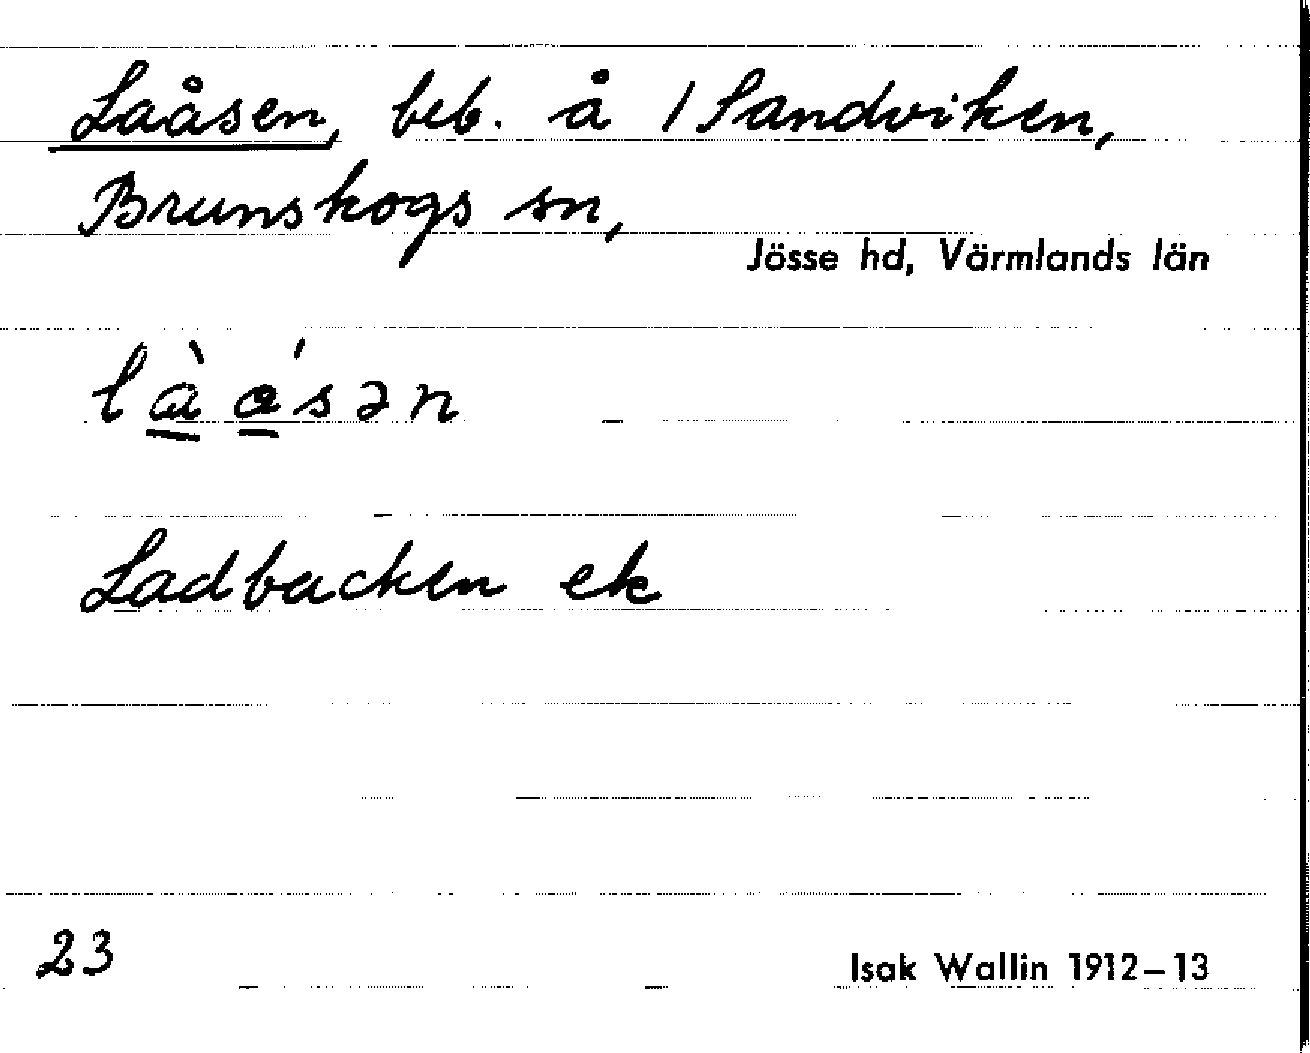 Laåsen, beb. å 1 Sandviken,
Brunskogs sn,
Jösse hd, Värmlands län
Ladbacken ek
23
Isak Wallin 1912–13